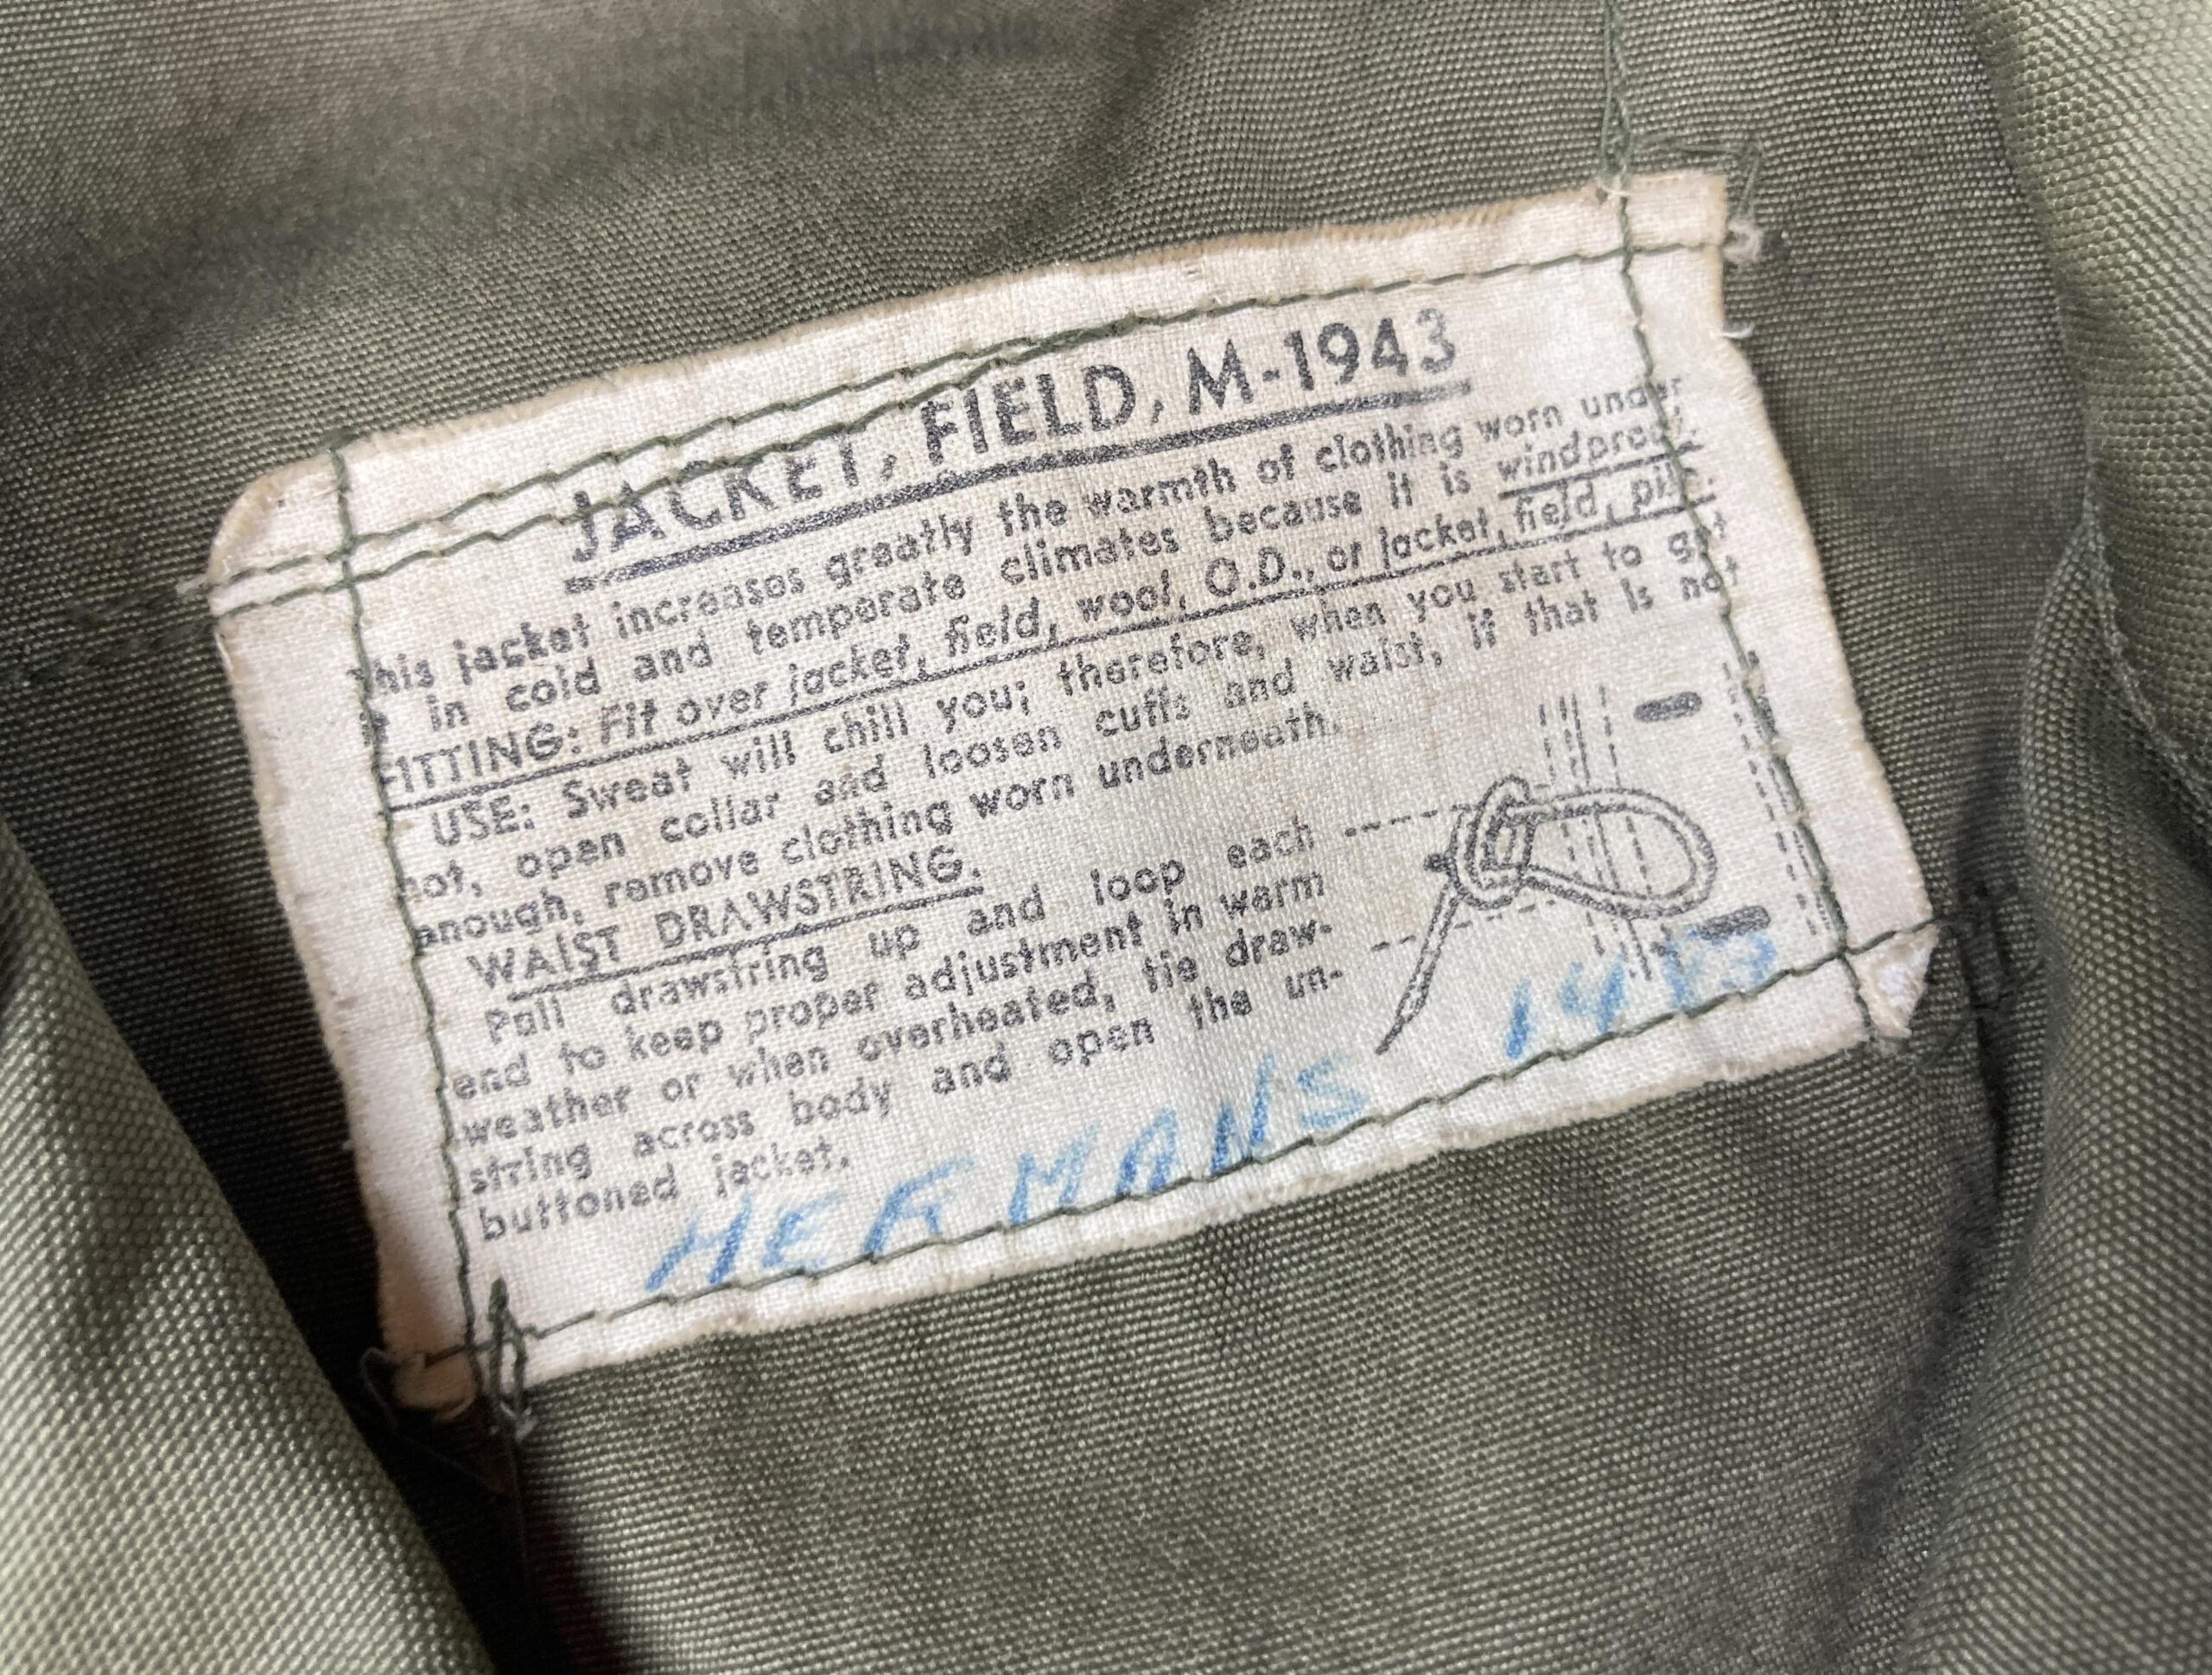 JACKET, FIELD, M-1943
This jacket increases greatly the warmth of clothing worn under
it in cold and temperate climates because it is windproof.
FITTING: Fit over jacket, field, wool, O.D., or jacket, field, pile.
USE: Sweat will chill you; therefore, when you start to get
hot, open collar and loosen cuffs and waist, if that is not
enough, remove clothing worn underneath.
WAIST DRAWSTRING.
Pull drawstring up and loop each
end to keep proper adjustment in warm
weather or when overheated, tie draw-
string across body and open the un-
buttoned jacket.
HERMANS